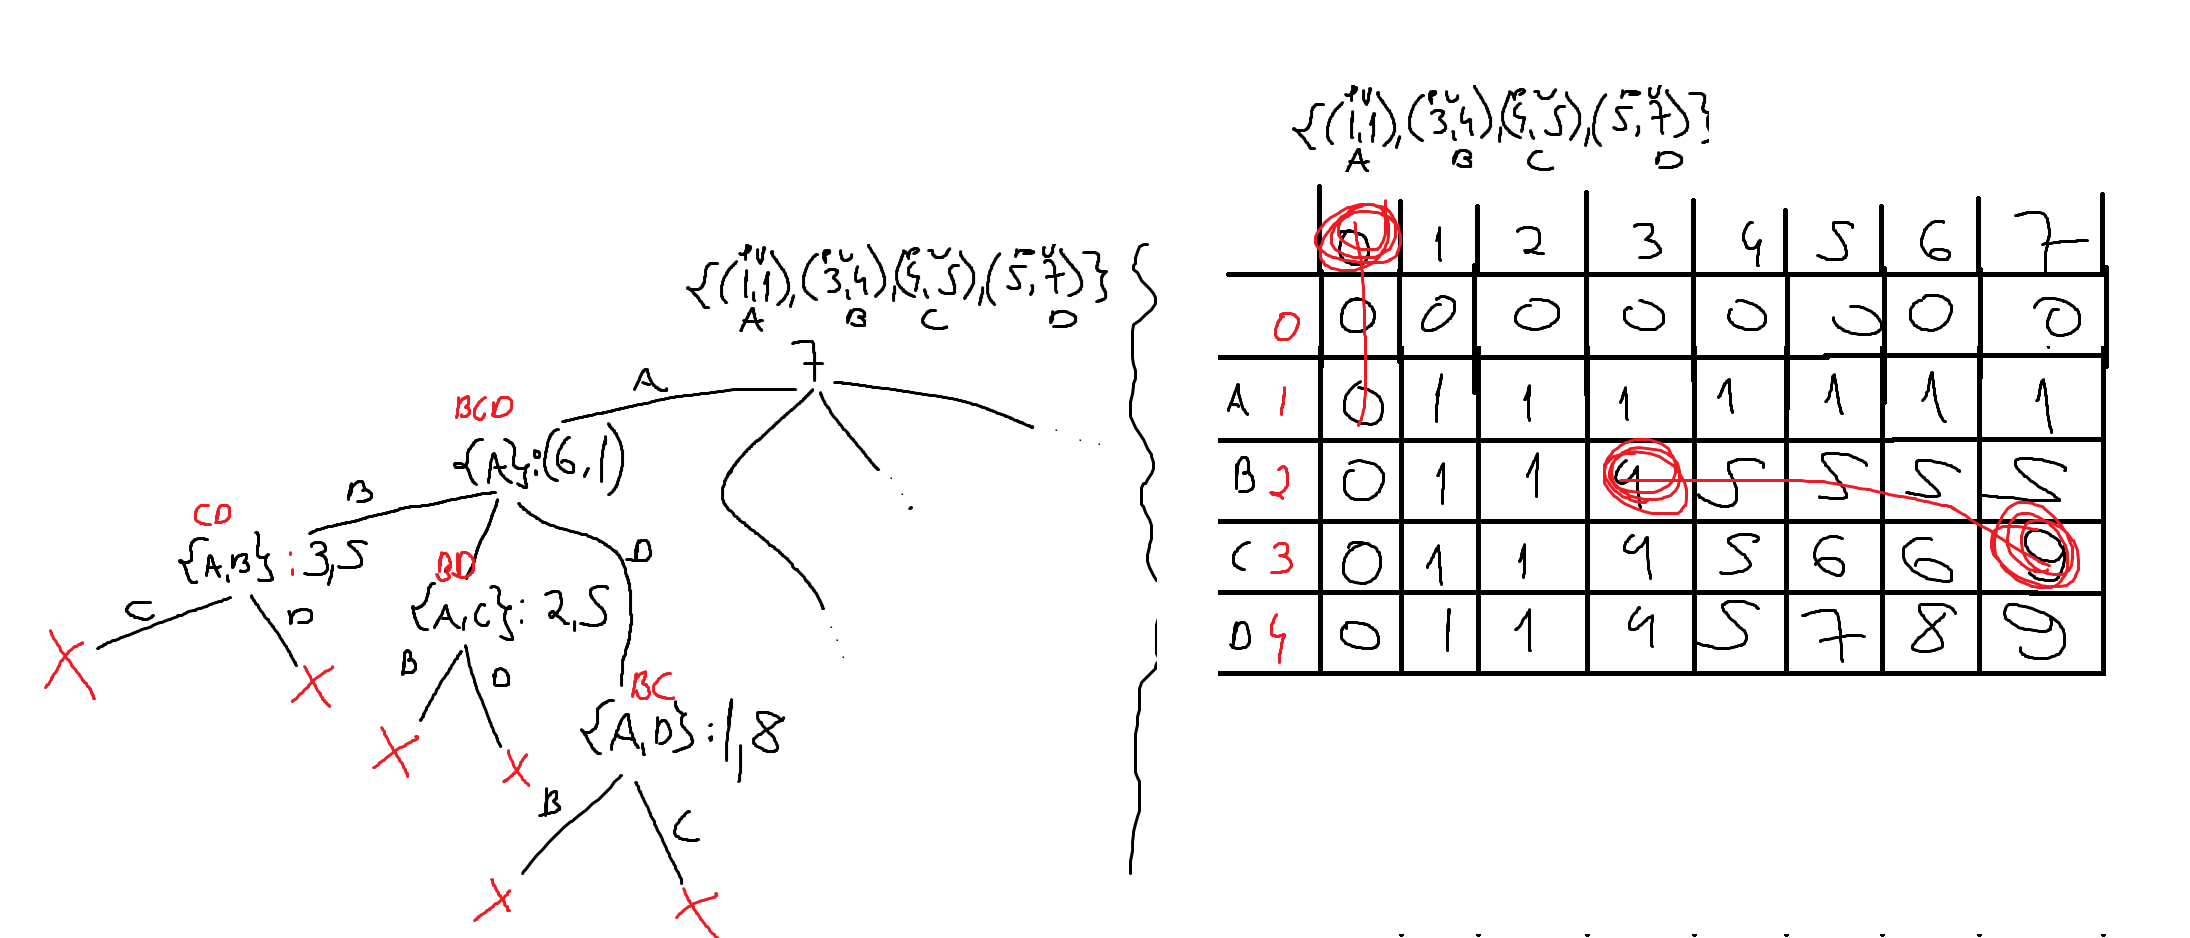 {(1,1),(3,4),(4,5),(5,7)}
A B C D
7
A
BCD
{A}:(6,1)
B
D
CD
{A,B}: 3,5
BD
{A,C}: 2,5
C
D
B
D
BC
{A,D}: 1,8
B
C
P V P V P V P V
{(1,1),(3,4),(4,5),(5,7)}
A B C D
0 1 2 3 4 5 6 7
0 0 0 0 0 0 0 0 0
A 1 0 1 1 1 1 1 1 1
B 2 0 1 1 4 5 5 5 5
C 3 0 1 1 4 5 6 6 9
D 4 0 1 1 4 5 7 8 9